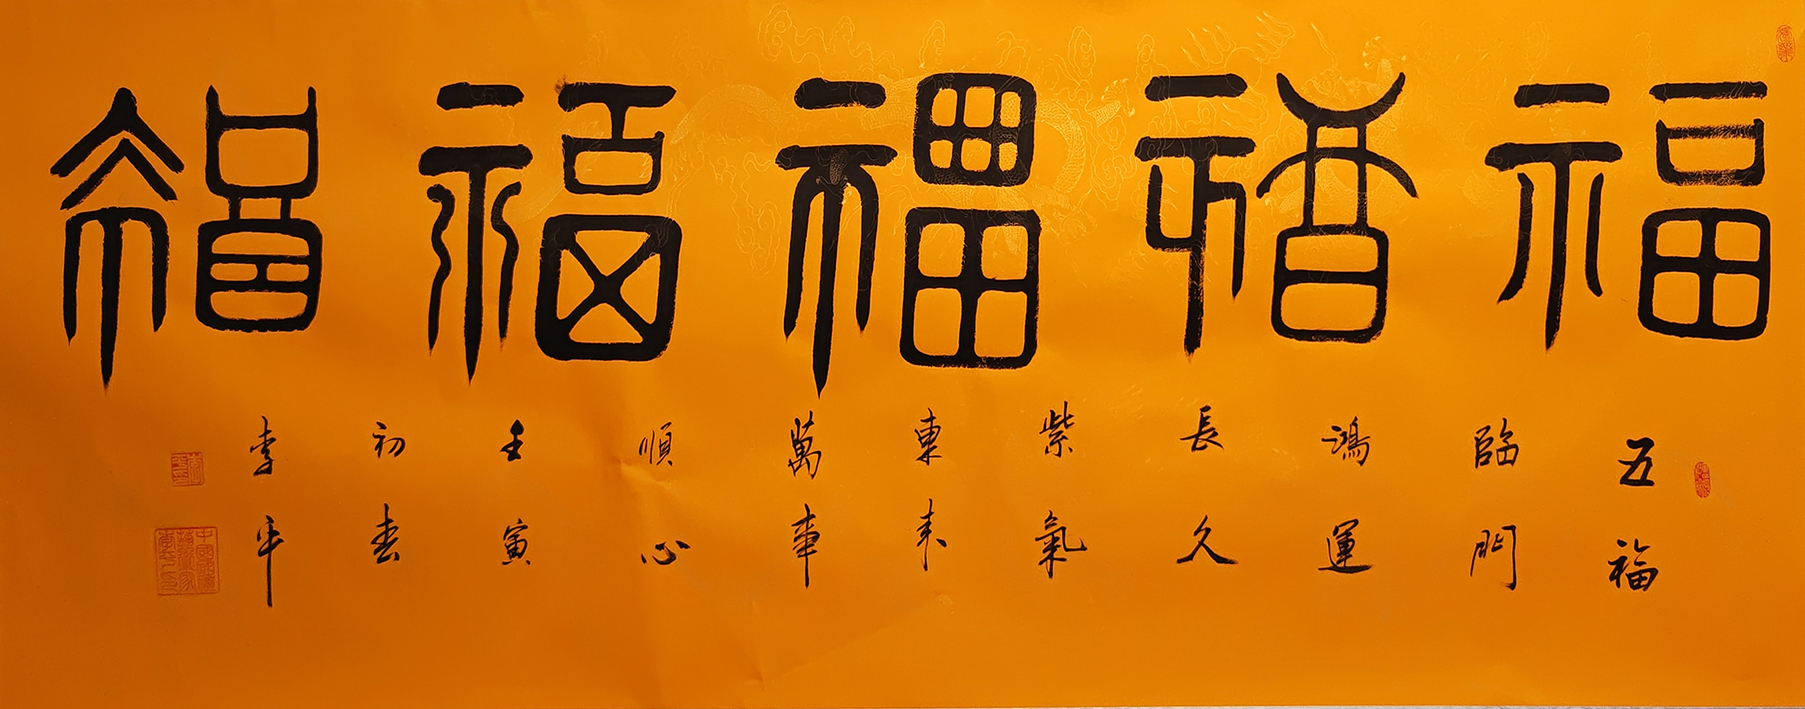 福福福福福
五福
臨門
鴻運
長久
紫氣
東来
萬事
順心
壬寅
初春
李平